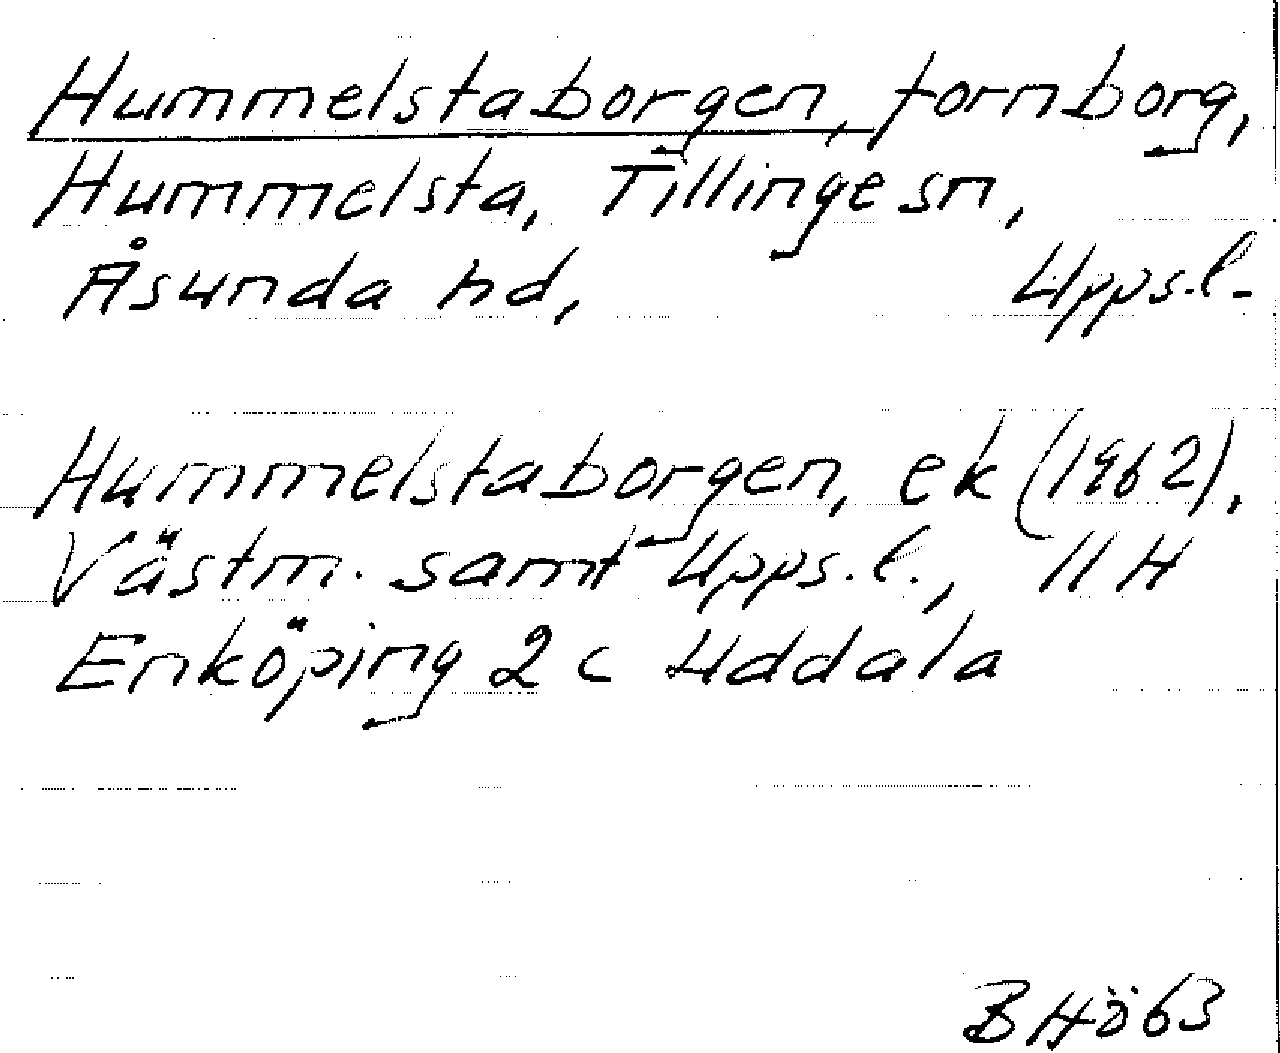 Hummelstaborgen, fornborg,
Hummelsta, Tillinge sn,
Åsunda hd, Upps.l.
Hummelstaborgen, ek (1962),
Västm. samt Upps.l., 11 H
Enköping 2 c Uddala
B Hö 63